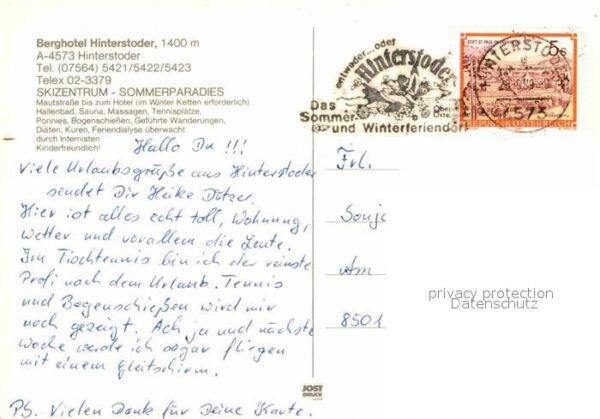 Berghotel Hinterstoder, 1400 m
A-4573 Hinterstoder
Tel. (07564) 5421/5422/5423
Telex 02-3379
SKIZENTRUM - SOMMERPARADIES
Mautstraße bis zum Hotel (im Winter Ketten erforderlich)
Hallenbad, Sauna, Massagen, Tennisplätze,
Ponnies, Bogenschießen, Geführte Wanderungen,
Diäten, Kuren, Feriendialyse überwacht
durch Internisten
Kinderfreundlich!
Hallo Du !!!
Viele Urlaubsgrüße aus Hinterstoder
sendet Dir Heike Dötzer.
Hier ist alles echt toll, Wohnung,
Wetter und vorallem die Leute.
Im Tischtennis bin ich der reinste
Profi nach dem Urlaub. Tennis
und Bogenschießen wird mir
noch gezeigt. Ach ja und nächste
Woche werde ich sogar fliegen
mit einem Gleitschirm.
PS. Vielen Dank für Deine Karte.
entweder...oder
Hinterstoder
Das
Sommer-
und Winterferiendorf
STIFT ST. PAUL
5
REPUBLIK ÖSTERREICH
HINTERSTODER
4573
Frl.
Sonja
Am
8501
privacy protection
Datenschutz
JOST
DRUCK